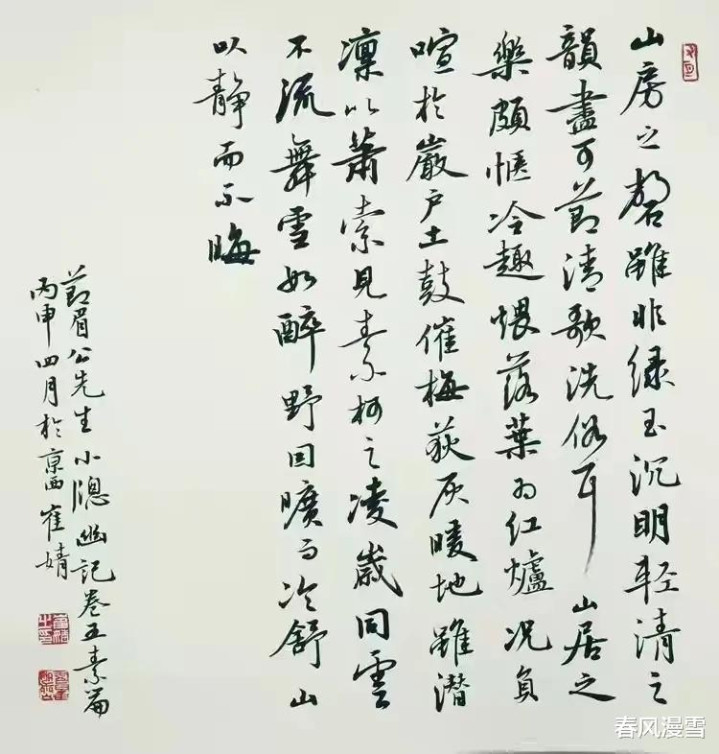 山房之磬雖非绿玉沉明轻清之
韻盡可節清歌洗俗耳山居之
樂頗愜冷趣煨落葉为红爐况負
喧於巖户土鼓催梅荻灰暖地雖潜
凜以蕭索見素柯之凌歲同雲
不流舞雪如醉野因曠而冷舒山
以静而不晦
節眉公先生小窗幽記卷五素篇
丙申四月於京西崔婧
春风漫雪